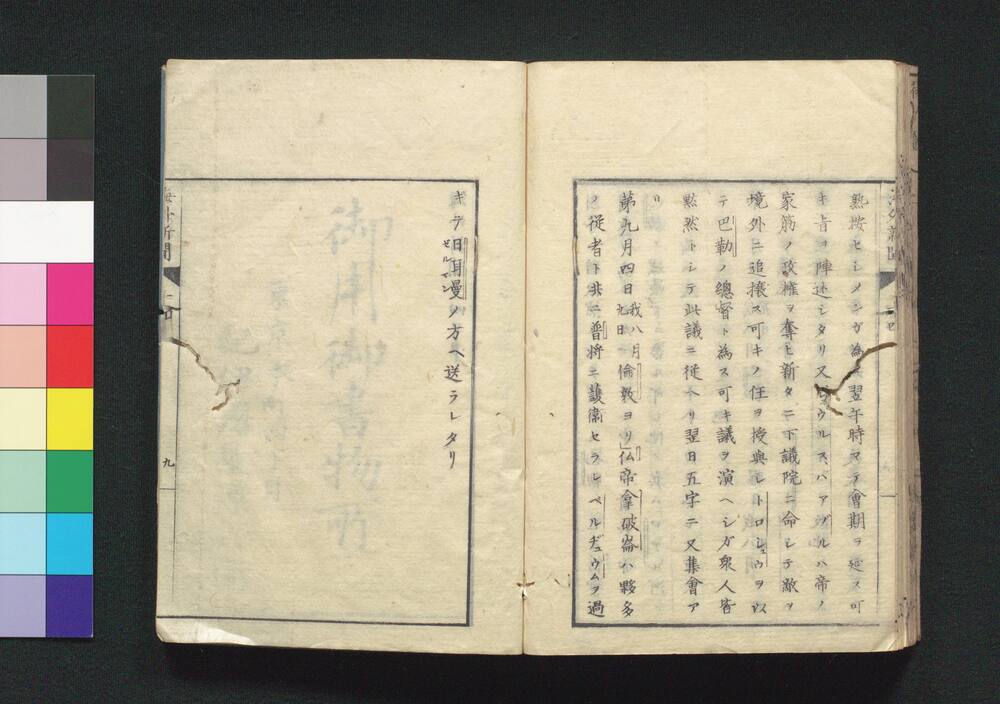 熟按セシメンガ為メ翌午時マテ會期ヲ延ス可
キ旨ヲ陣述シタリ又ウルスハアブルハ帝ノ
家筋ノ政権ヲ奪ヒ新タニ下議院ニ命シテ敵ヲ
境外ニ追攘ス可キノ任ヲ授與レトロシュウヲ以
テ巴勒ノ總督ト為ス可キ議ヲ演ヘシガ衆人皆
黙然トシテ此議ニ従ヘリ翌日五字ニ又集會ア
リ
第九月四日我八月九日倫敦ヨリ仏帝拿破崙ハ夥多
ノ従者ト共ニ普将ニ護衛セラレベルヂュウムヲ過
キテ日耳曼ゼルマンノ方へ送ラレタリ
海外新聞
九